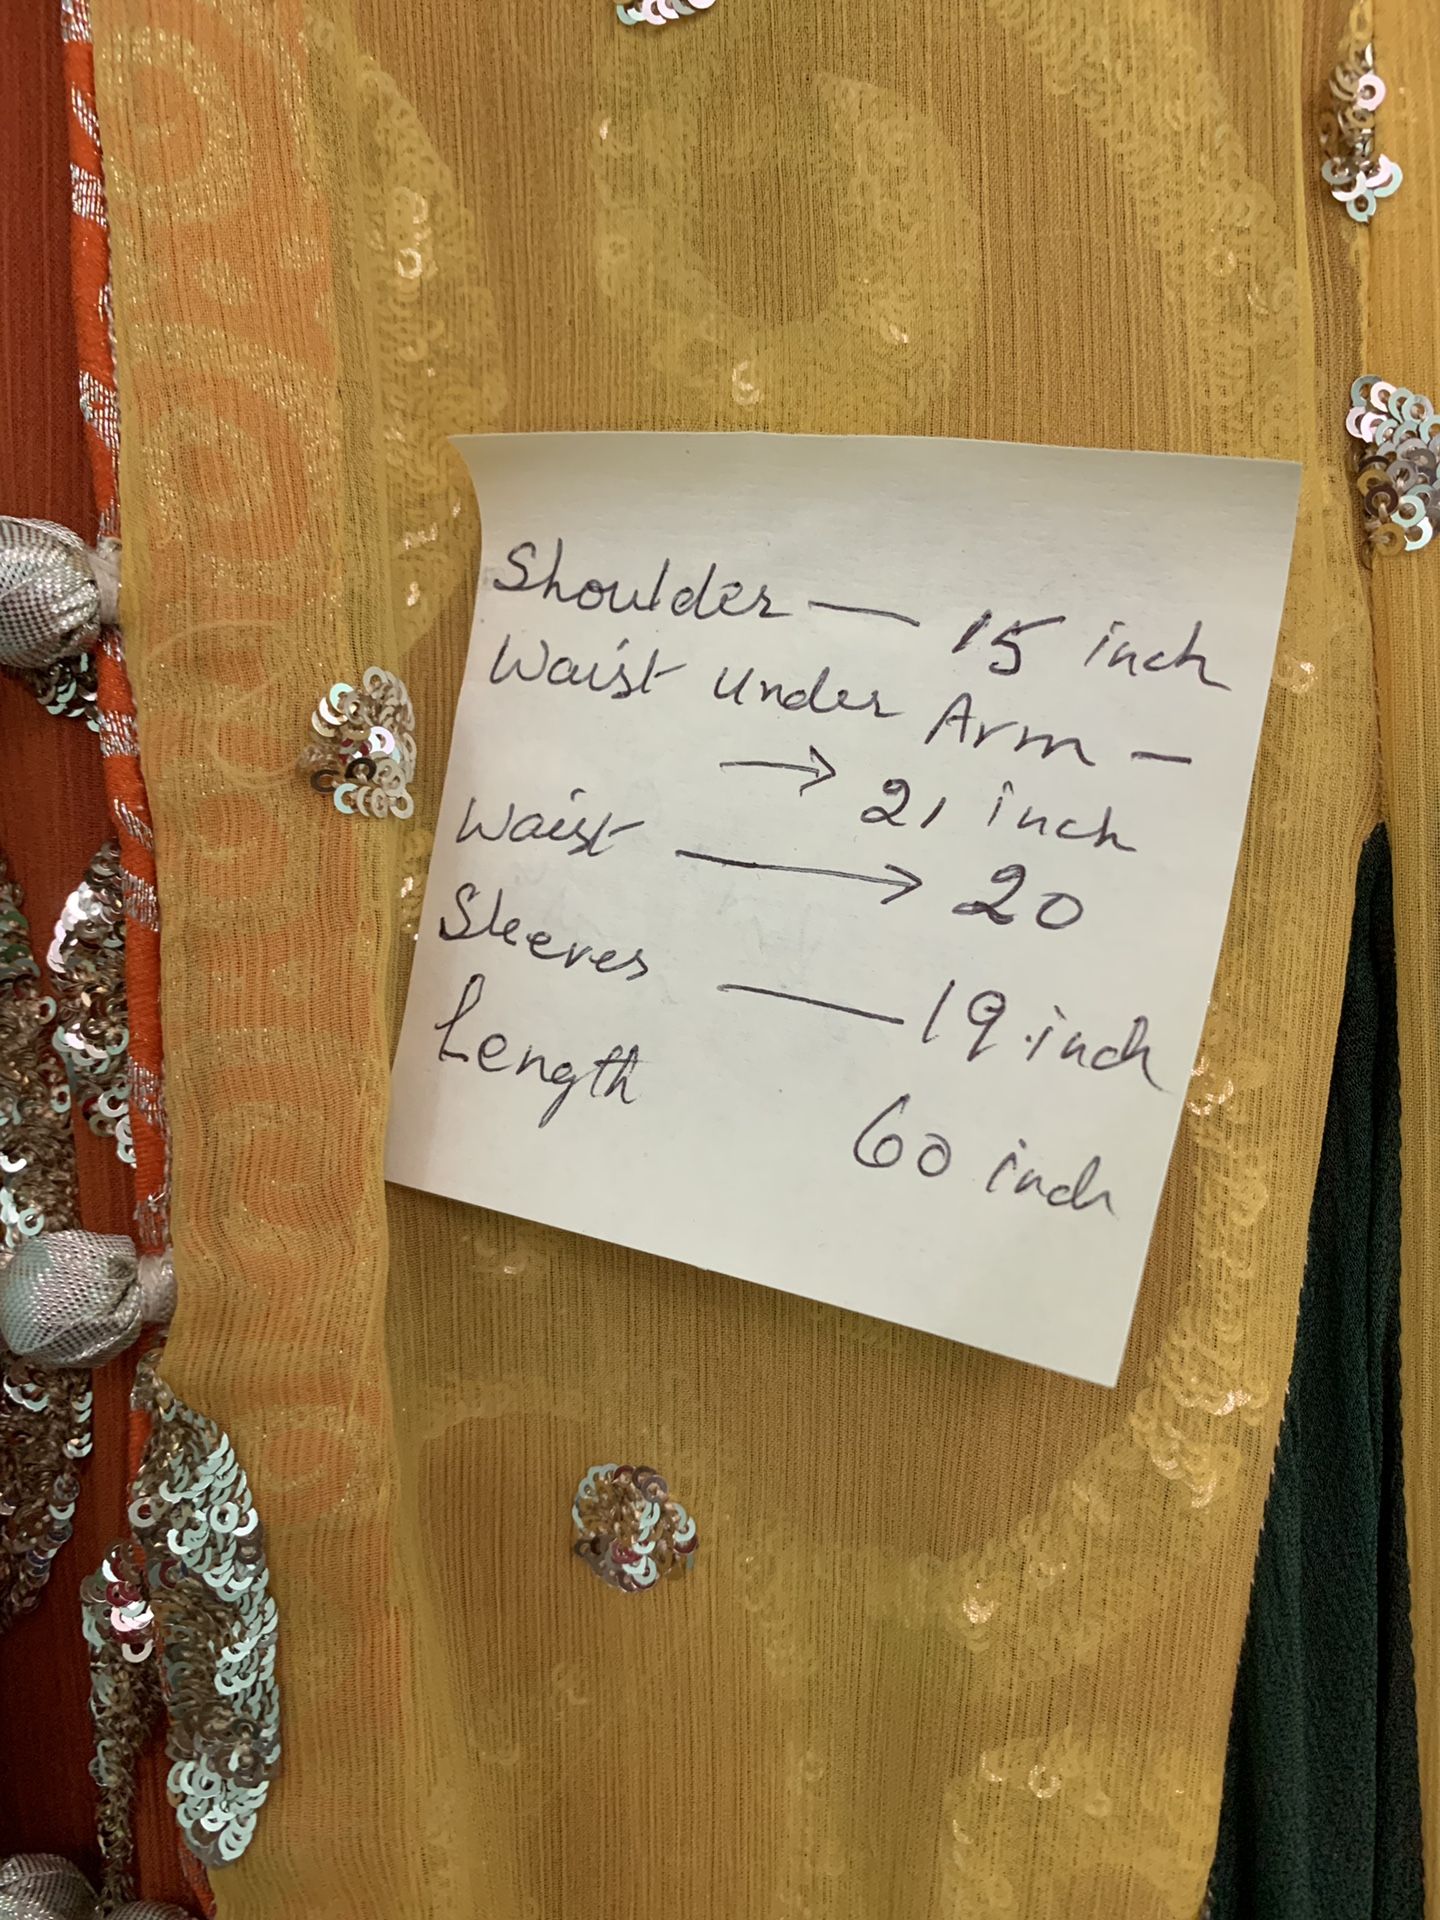 Shoulder — 15 inch
Waist Under Arm —
→ 21 inch
Waist → 20
Sleeves — 19 inch
Length 60 inch